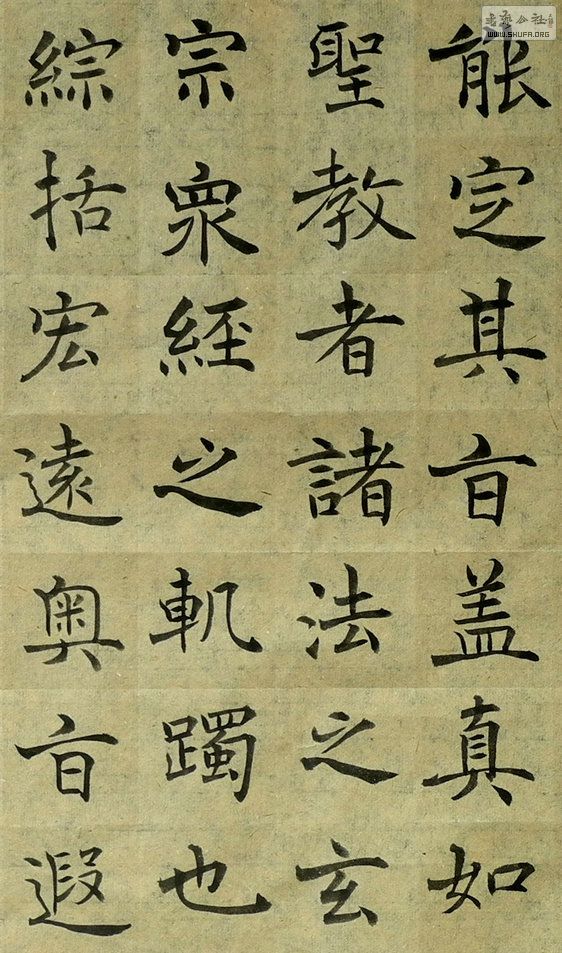 能定其㫖盖真如
聖教者諸法之玄
宗衆經之軌躅也
綜括宏遠奥㫖遐
书艺公社
WWW.SHUFA.ORG